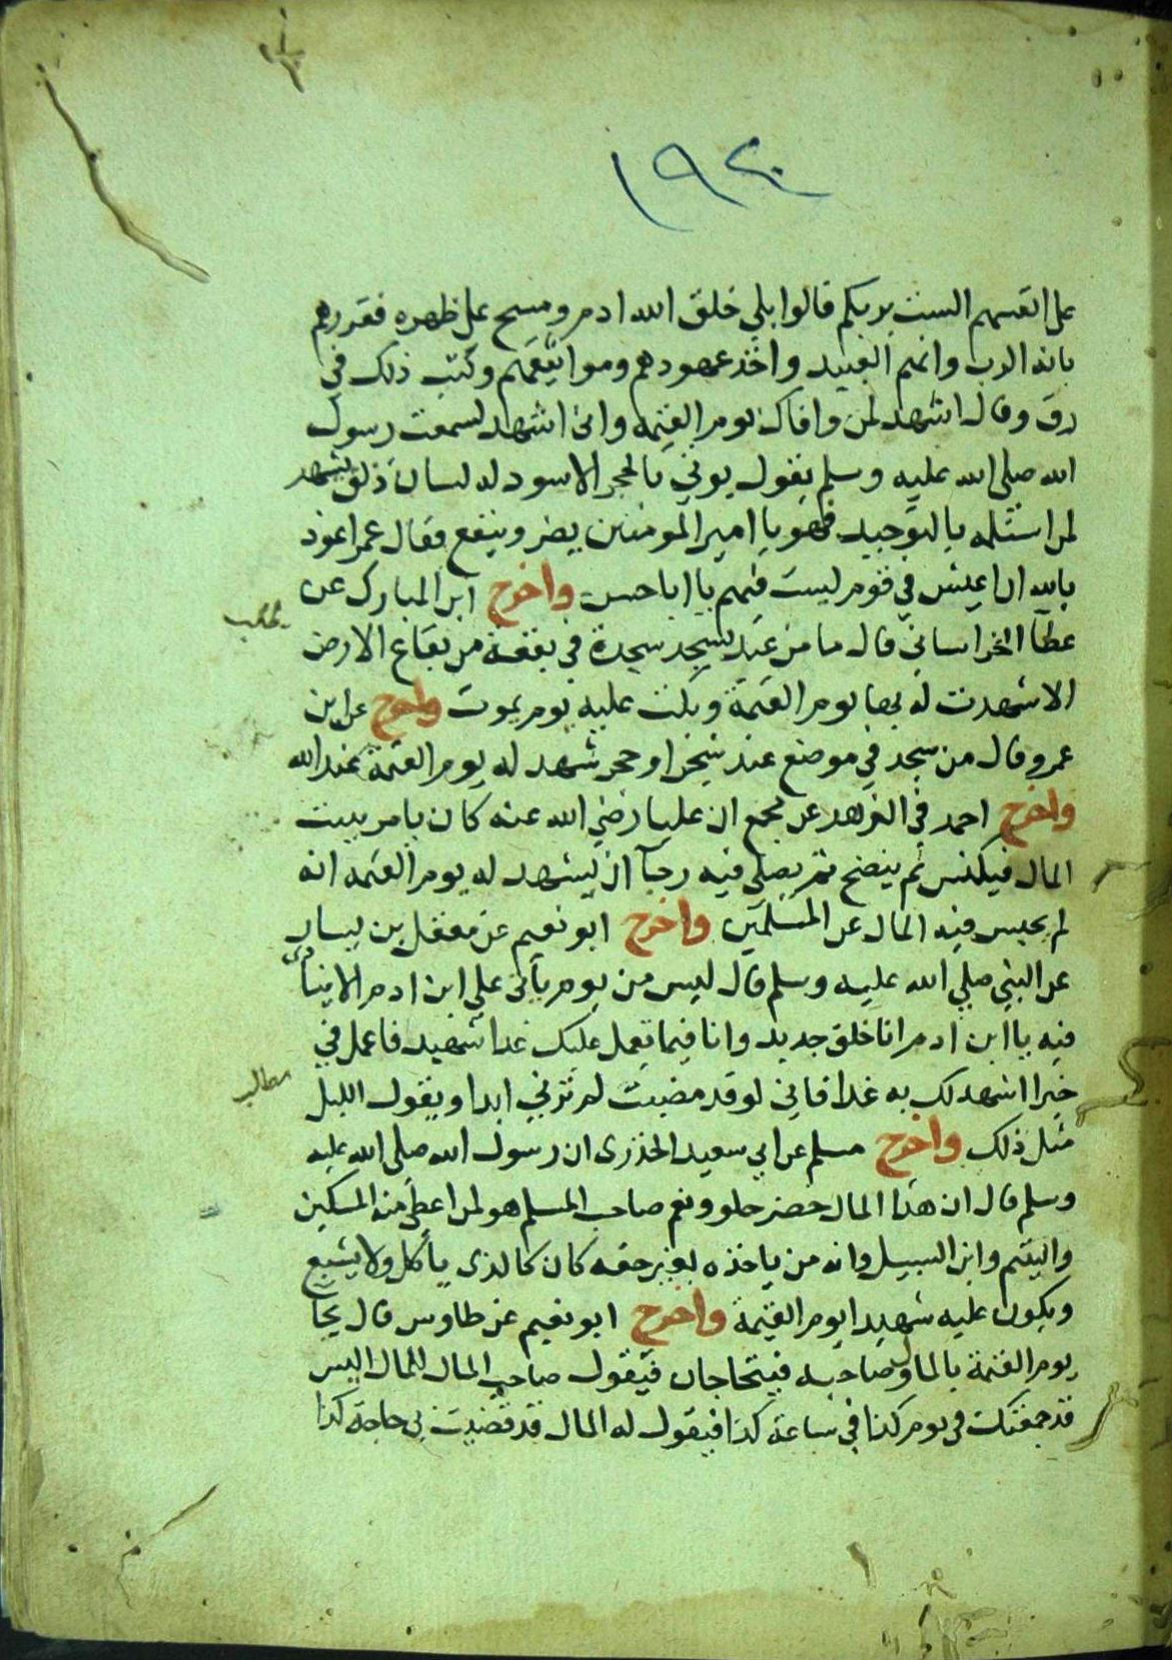 ١٩٢٠
على انفسهم الست بربكم قالوا بلى خلق الله ادم ومسح على ظهره فقررهم
بانه الرب وانهم العبيد واخذ عهودهم ومواثيقهم وكتب ذلك في
رق وقال اشهد لمن وافاك يوم القيمة واني اشهد لسمعت رسول
الله صلى الله عليه وسلم يقول يوتى بالحجر الاسود له لسان ذلق يشهد
لمن استلمه بالتوحيد فهو يا امير المومنين يضر وينفع فقال عمر اعوذ
بالله ان اعيش في قوم ليست فيهم يا ابا حسن واخرج ابن المبارك عن
عطآ الخراساني قال ما من عبد يسجد سجدة في بقعة من بقاع الارض
الا شهدت له بها يوم القيمة وبكت عليه يوم يموت واخرج عن ابن
عمرو قال من سجد في موضع عند شجر او حجر شهد له يوم القيمة عند الله
واخرج احمد في الزهد عن مجمع ان عليا رضي الله عنه كان يامر ببيت
المال فيكنس ثم ينضح ثم يصلي فيه رجآ ان يشهد له يوم القيمه انه
لم يحبس فيه المال عن المسلمين واخرج ابو نعيم عن معقل بن يسار
عن النبي صلى الله عليه وسلم قال ليس من يوم يأتى على ابن ادم الا ينادى
فيه يا ابن ادم انا خلق جديد وانا فيما تعمل عليك غدا شهيد فاعمل في
خيرا اشهد لك به غدا فاني لو قد مضيت لم ترني ابدا ويقول الليل
مطلب
مثل ذلك واخرج مسلم عن ابي سعيد الخدرى ان رسول الله صلى الله عليه
وسلم قال ان هذا المال خضر حلو ونعم صاحب المسلم هو لمن اعطى منه المسكين
واليتيم وابن السبيل وانه من ياخذه بغير حقه كان كالذى يأكل ولا يشبع
ويكون عليه شهيدا يوم القيمة واخرج ابو نعيم عن طاوس قال يجآ
يوم القيمة بالمال وصاحبه فيتحاجان فيقول صاحب المال للمال اليس
قد جمعتك في يوم كذا في ساعة كذا فيقول له المال قد قضيت بي حاجة كذا